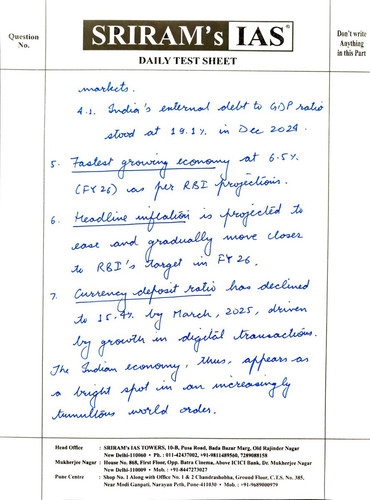 Question
No.
SRIRAM's IAS®
DAILY TEST SHEET
Don't write
Anything
in this Part
markets.
4.1. India's external debt to GDP ratio
stood at 19.1% in Dec 2024.
5. Fastest growing economy at 6.5%
(FY26) as per RBI projections.
6. Headline inflation is projected to
ease and gradually move closer
to RBI's target in FY26.
7. Currency deposit ratio has declined
to 15.4% by March, 2025, driven
by growth in digital transactions.
The Indian economy, thus, appears as
a bright spot in an increasingly
tumultous world order.
Head Office : SRIRAM's IAS TOWERS, 10-B, Pusa Road, Bada Bazar Marg, Old Rajinder Nagar
New Delhi-110060 • Ph. : 011-42437002, +91-9811489560, 7289088158
Mukherjee Nagar : House No. 868, First Floor, Opp. Batra Cinema, Above ICICI Bank, Dr. Mukherjee Nagar
New Delhi-110009 • Mob. : +91-8447273027
Pune Centre : Shop No. 1 Along with Office No. 1 & 2 Chandrashobha, Ground Floor, C.T.S. No. 385,
Near Modi Ganpati, Narayan Peth, Pune-411030 • Mob. : +91-9689000979